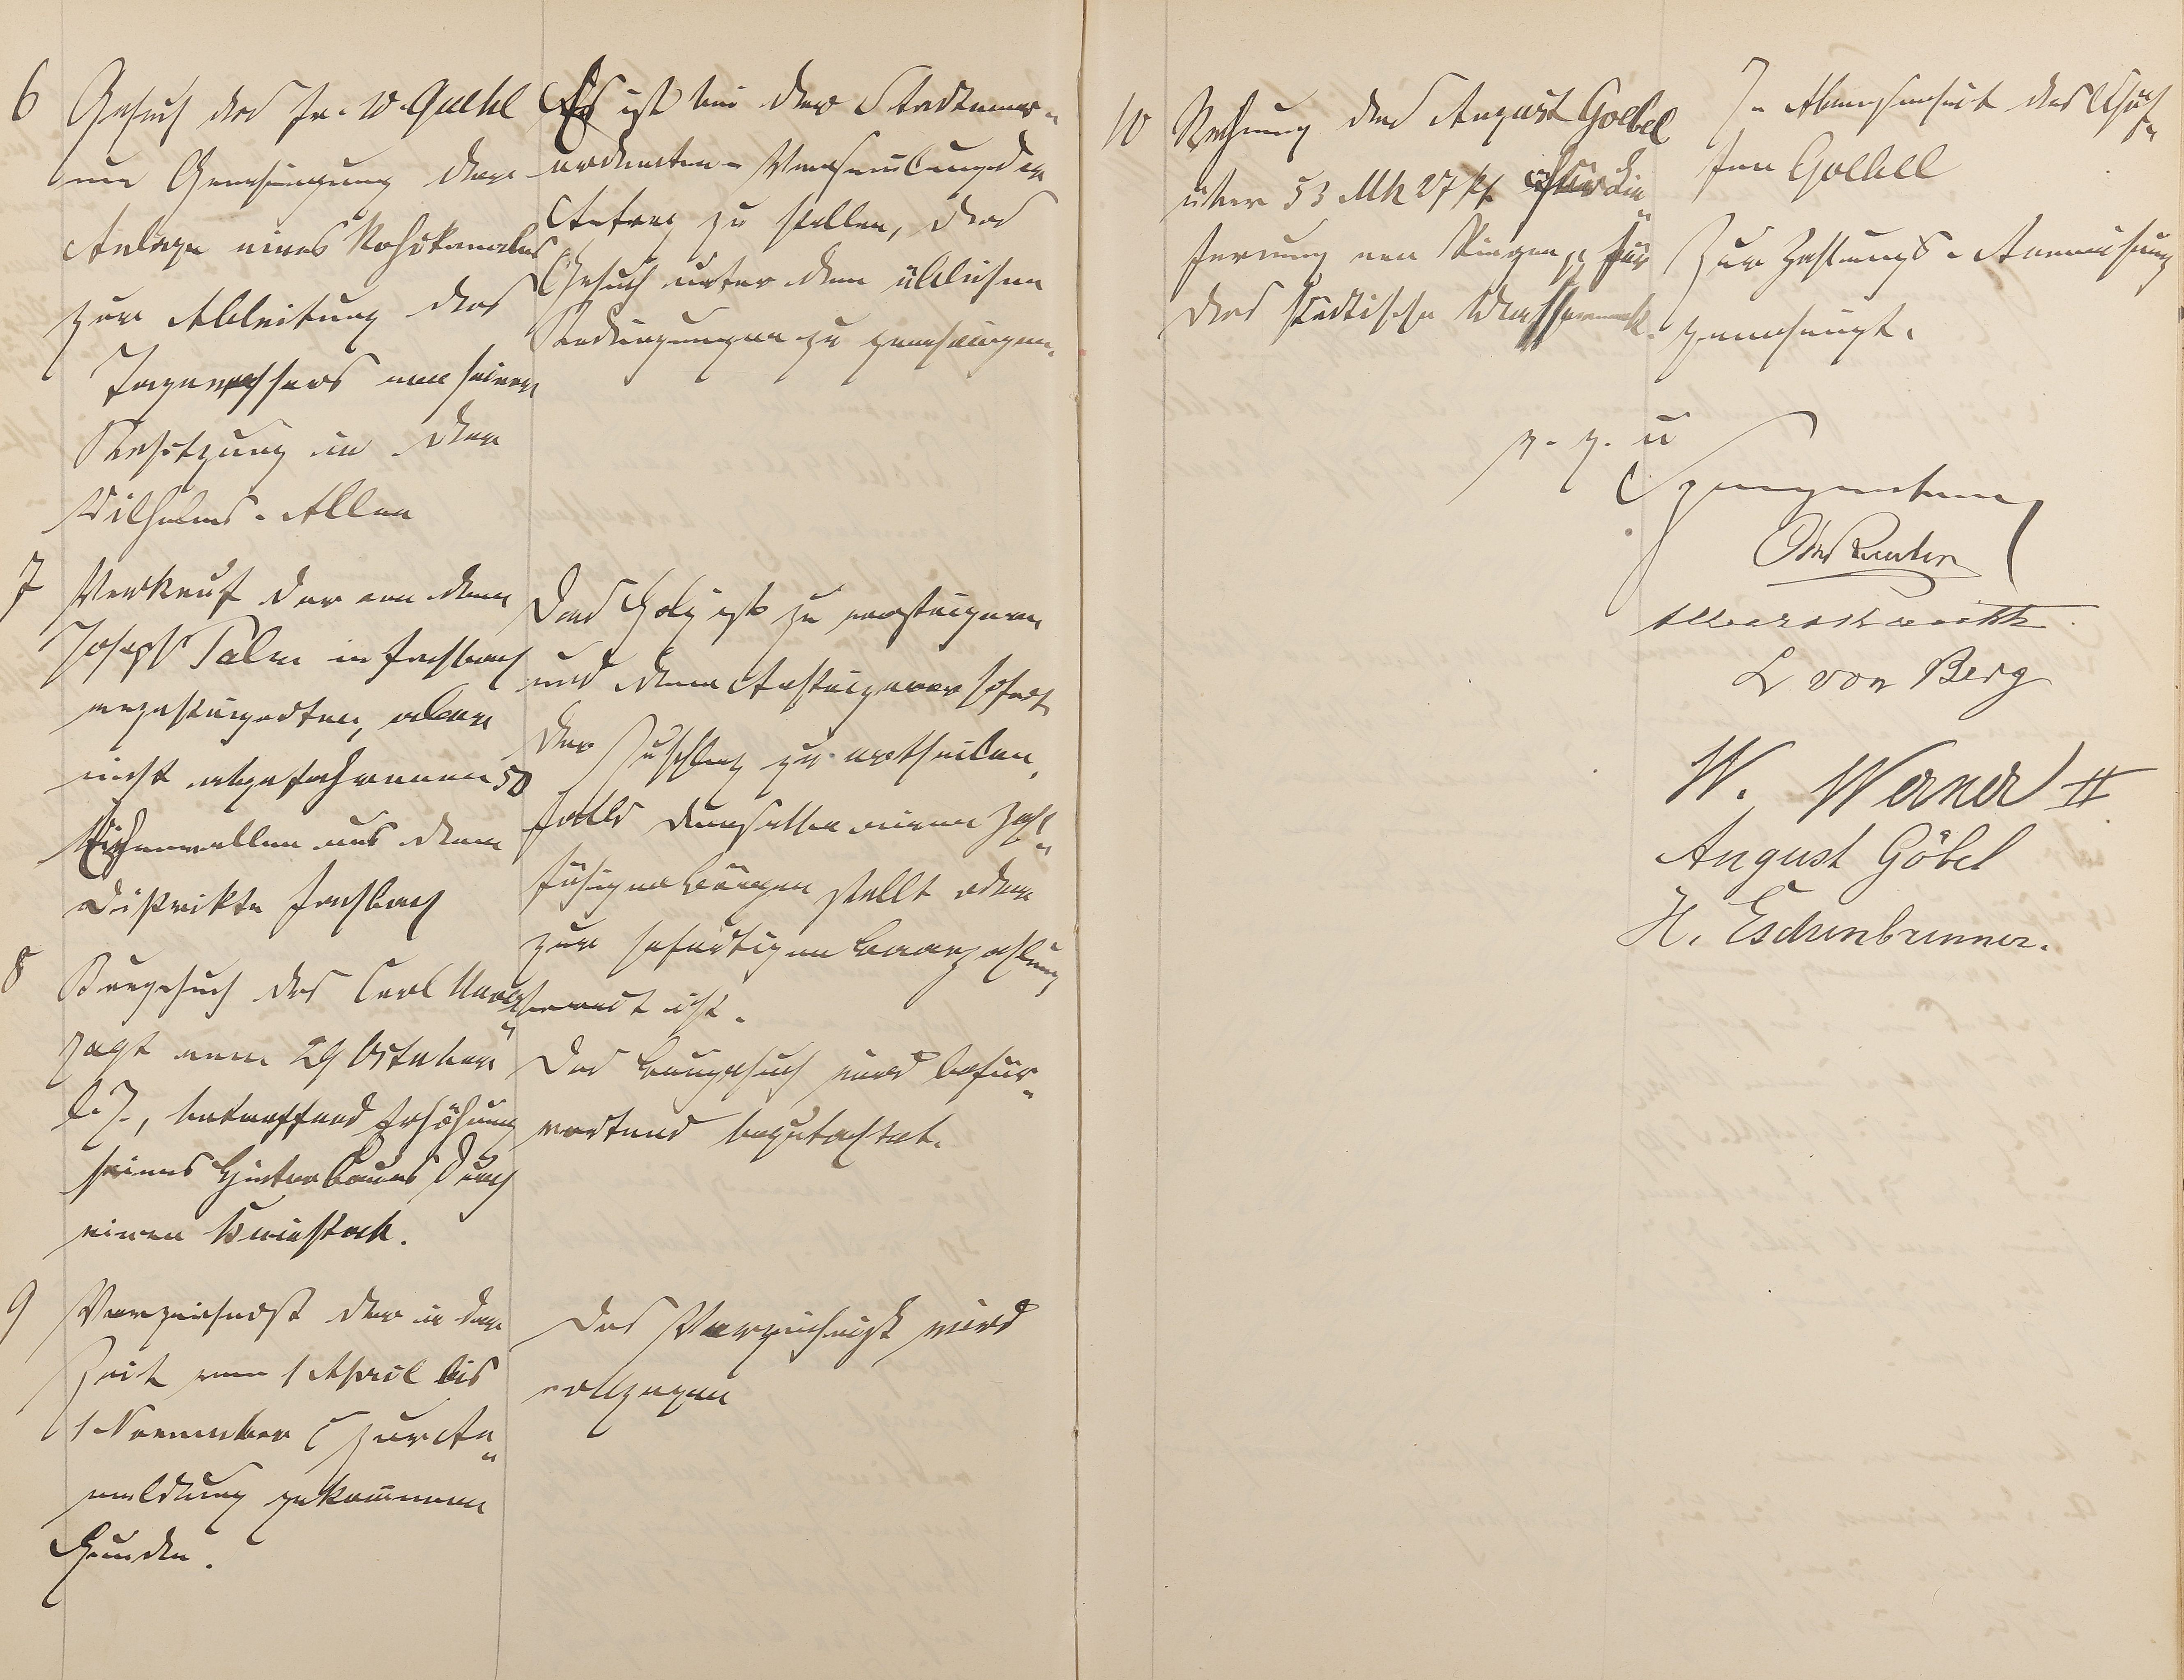 6 Gesuch des Fr. W. Guckl
um Genehmigung der
Anlage eines Rohrkanales
zur Ableitung des
Tagewassers von seiner
Besitzung in der
Wilhelms-Allee
Es ist bei der Stadtver-
ordneten-Versammlung der
Antrag zu stellen, das
Gesuch unter den üblichen
Bedingungen zu genehmigen.
7 Verkauf der von dem
Joseph Palm in Fachbach
ersteigerten, aber
nicht abgefahrenen 50
Eichenwellen aus dem
Distrikte Fachbach
Das Holz ist zu versteigern
und dem Ansteigerer sofort
der Zuschlag zu ertheilen,
falls derselbe einen zahl-
fähigen Bürgen stellt oder
zur sofortigen Baarzahlung
bereit ist.
8 Baugesuch des Carl
vom 29 October
d. J., betreffend Erhöhung
seines Hinterbaues durch
einen Kniestock.
Das Baugesuch wird befür-
wortend begutachtet.
9 Verzeichniß der in der
Zeit vom 1 April bis
1 November zur An-
meldung gekommenen
Hunden.
Das Verzeichniß wird
vollzogen
10 Rechnung des August Goebel
über 53 Mk 27 Pf für Lie-
ferung von Ringen pp für
das städtische Wasserwerk.
In Abwesenheit des Schöf-
fen Goebel
Zur Zahlungs-Anweisung
genehmigt.
v. g. u
L von Berg
W. Werner II
August Göbel
H. Eschenbrenner.